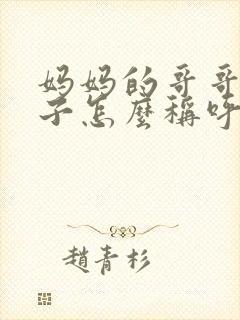 妈妈的哥哥
子怎麼稱呼
趙青杉